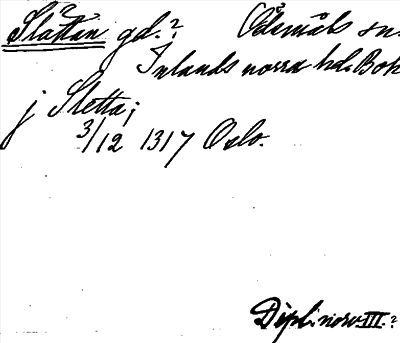 Slättan gd.? Ödsmåls sn.
Inlands norra hd. Boh
j Sletta;
3/12 1317 Oslo.
Dipl. norv. III.?